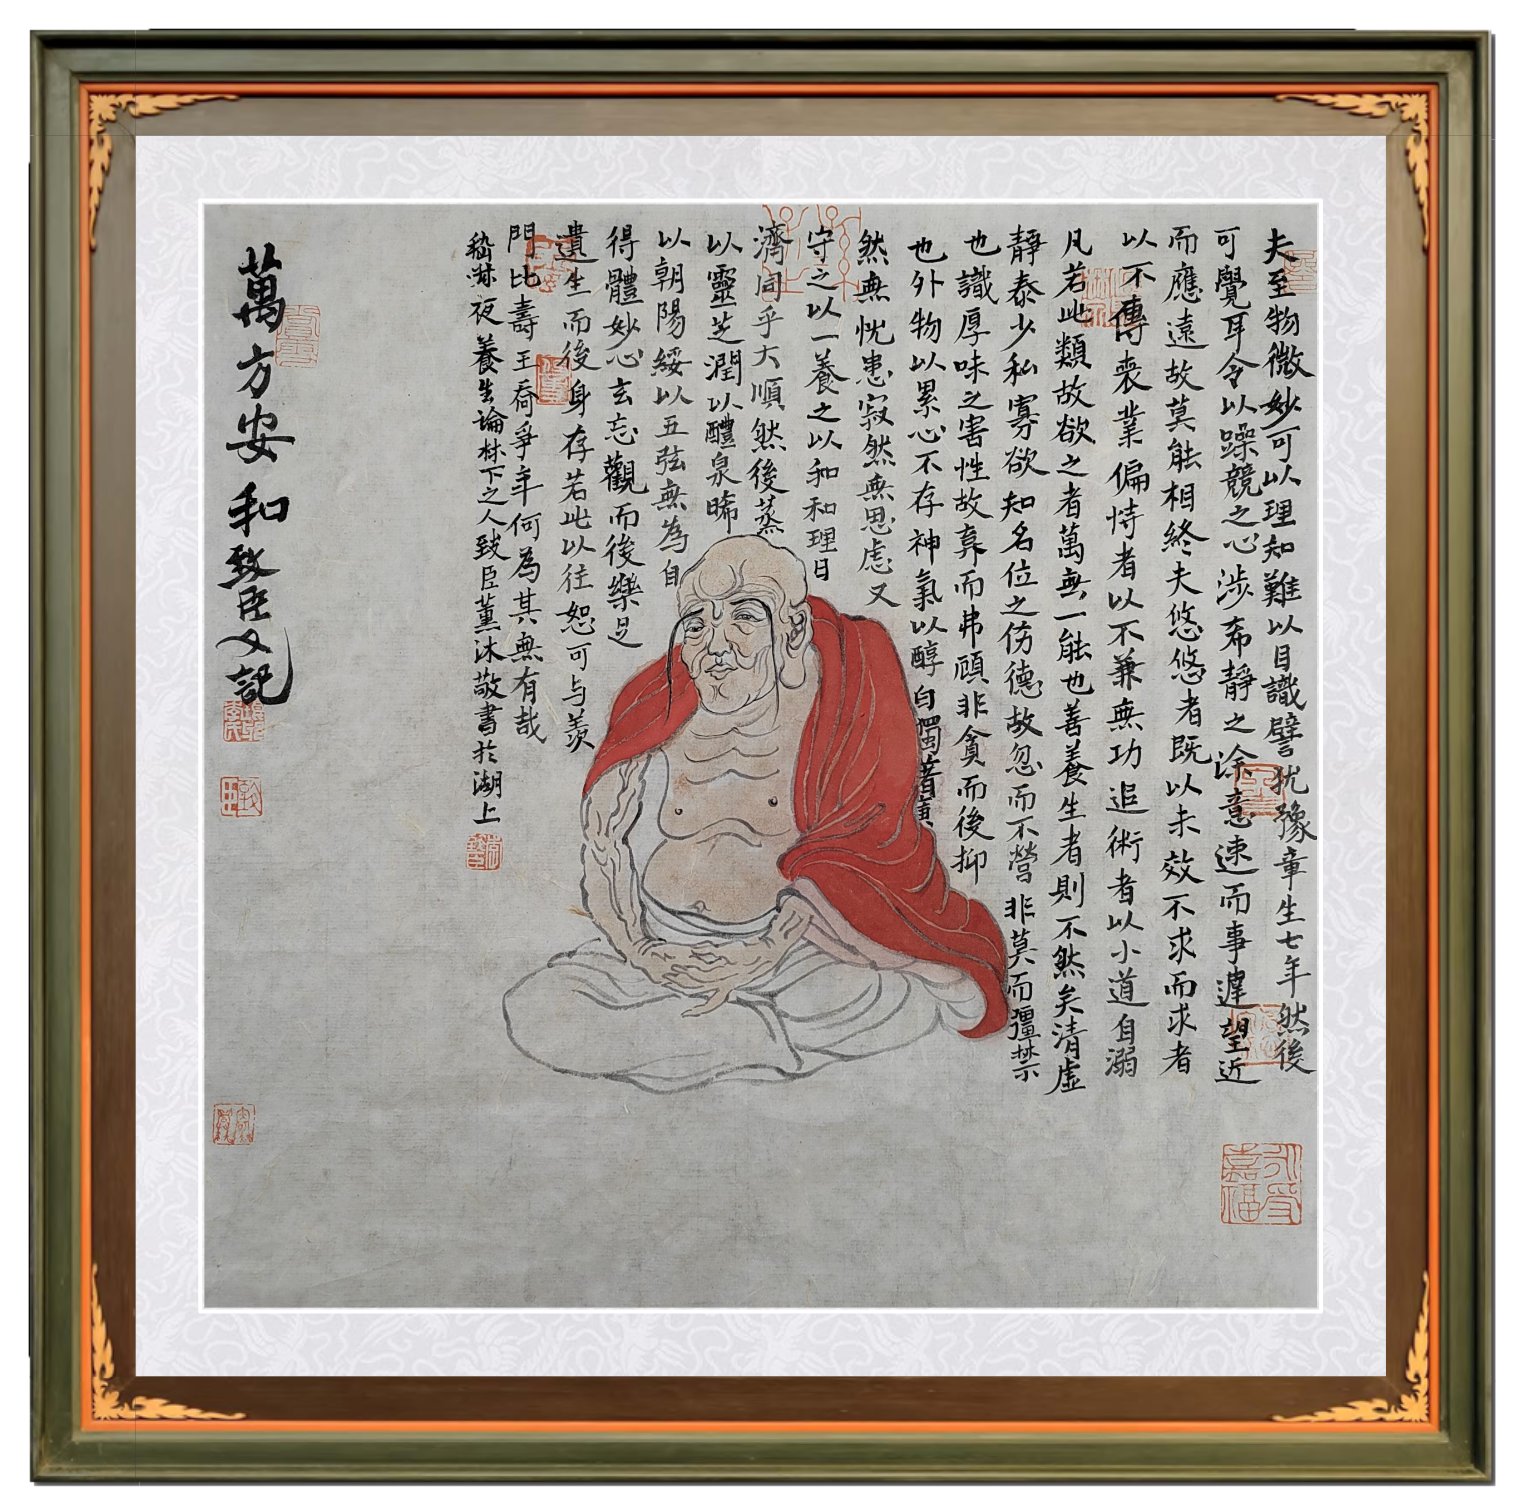 夫至物微妙可以理知難以目識譬犹豫章生七年然後
可覺耳令以躁競之心涉希靜之涂意速而事遲望近
而應遠故莫能相終夫悠悠者既以未效不求而求者
以不傳喪業偏恃者以不兼無功追術者以小道自溺
凡若此類故欲之者萬無一能也善養生者則不然矣清虛
靜泰少私寡欲知名位之伤德故忽而不營非莫而彊禁
也識厚味之害性故棄而弗顧非貪而後抑
也外物以累心不存神氣以醇白獨著廣
然無忧患寂然無思慮又
守之以一養之以和和理日
濟同乎大順然後蒸
以靈芝潤以醴泉晞
以朝陽綏以五弦無為自
得體妙心玄忘觀而後樂足
遺生而後身存若此以往恕可与羨
門比壽王喬爭年何為其無有哉
嵇叔夜養生論林下之人致臣薰沐敬書於湖上
萬方安和致臣又記
永受嘉福